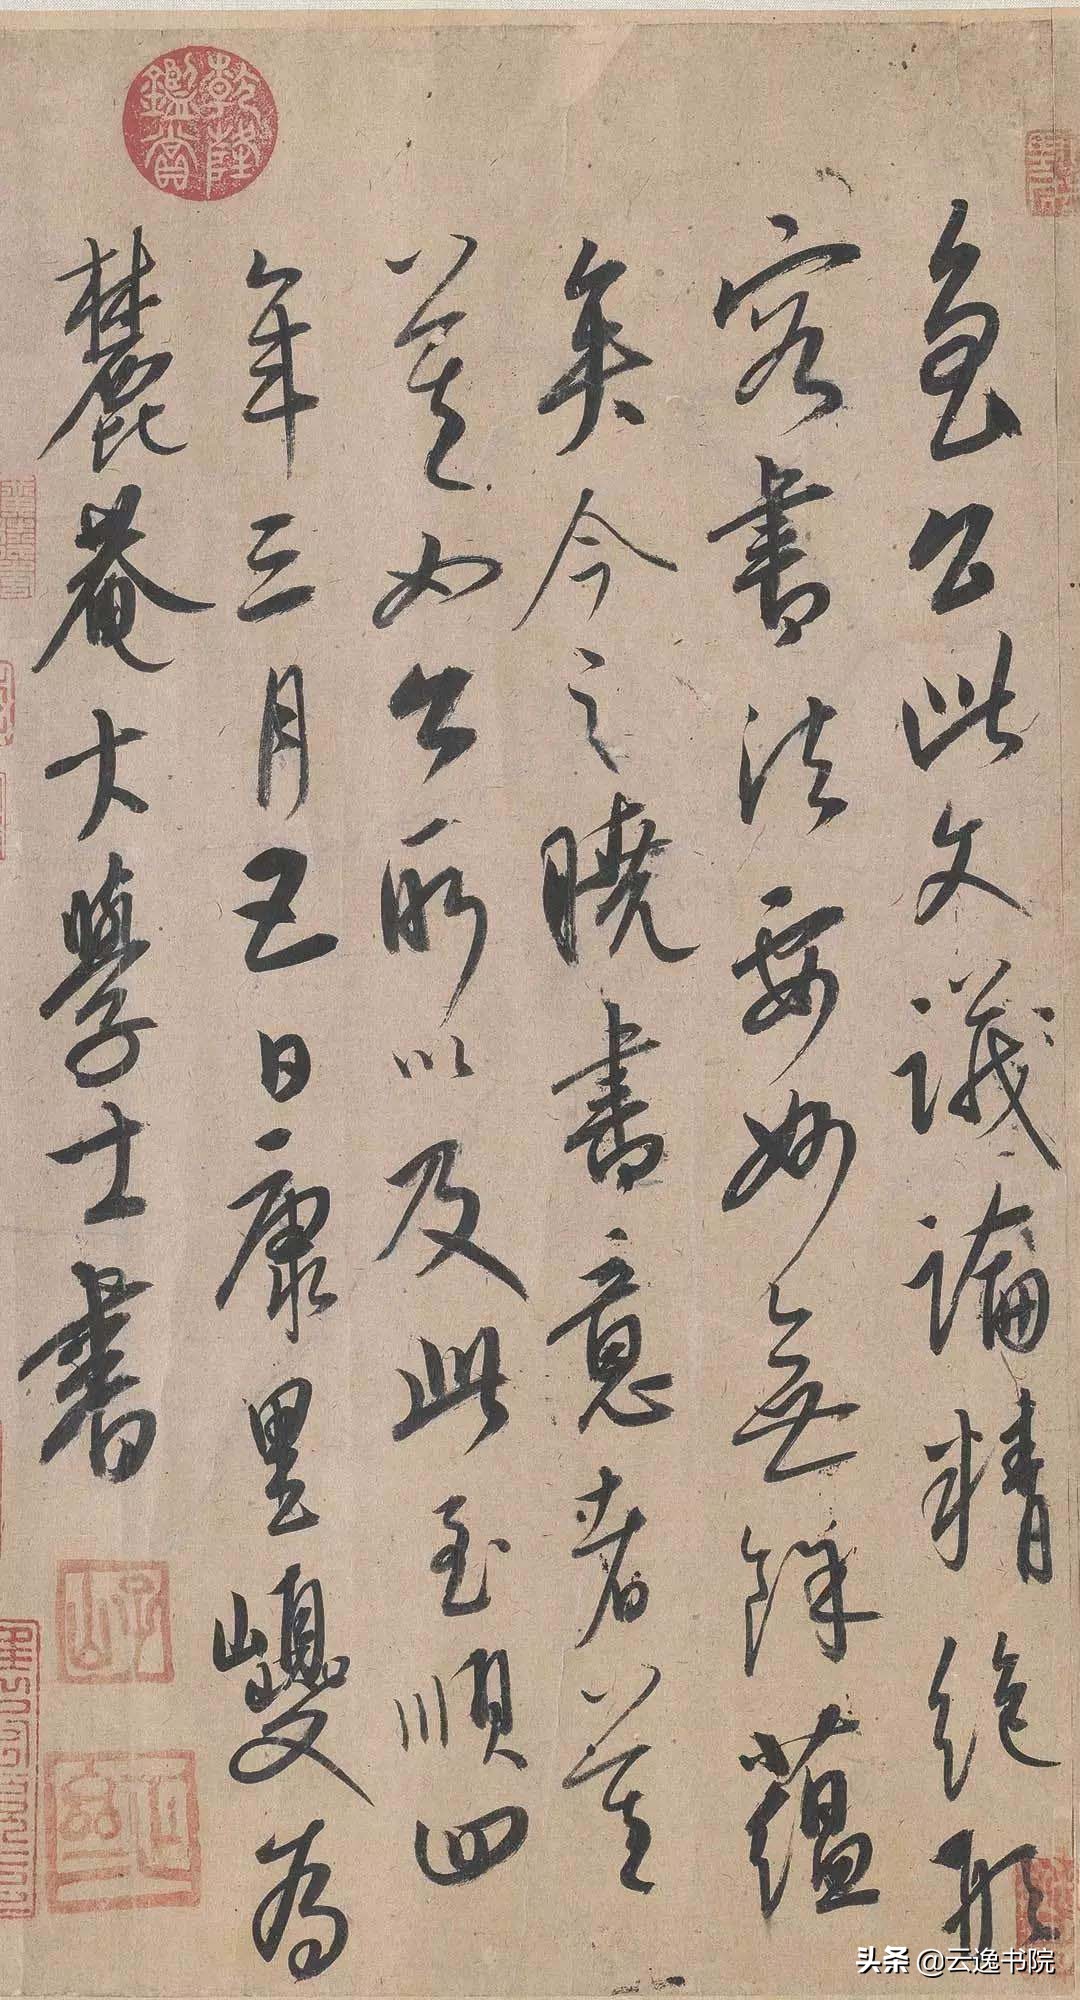 乾隆鑑賞
魯公此文議論精絕形
容書法要妙無餘蘊
矣今之曉書意者莫
莫如公所以及此至順四
年三月五日康里巎為
麓菴大學士書
子山
正齋
头条 @云逸书院